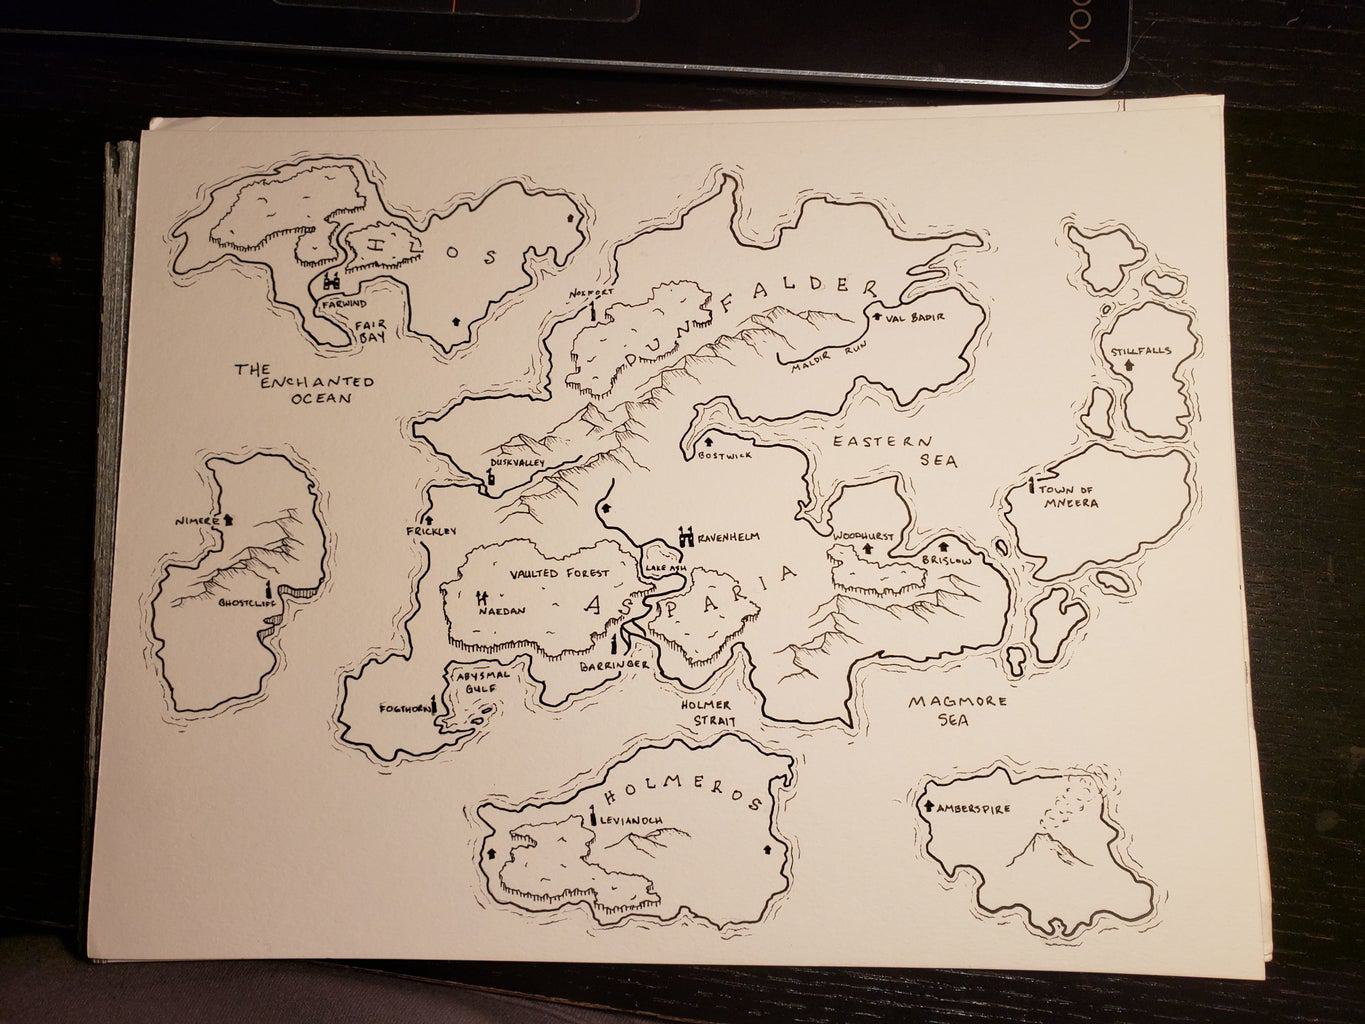 YOG
IOS
FARWIND
FAIR
BAY
THE
ENCHANTED
OCEAN
NOXFORT
DUN FALDER
VAL BADIR
MALDIR RUN
STILLFALLS
EASTERN
SEA
BOSTWICK
DUSKVALLEY
TOWN OF
MNEERA
NIMERE
FRICKLEY
RAVENHELM
WOODHURST
BRISLOW
LAKE ASH
VAULTED FOREST
NAEDAN
ASPARIA
GHOSTCLIFF
BARRINGER
ABYSMAL
GULF
FOGTHORN
HOLMER
STRAIT
MAGMORE
SEA
HOLMEROS
LEVIANOCH
AMBERSPIRE